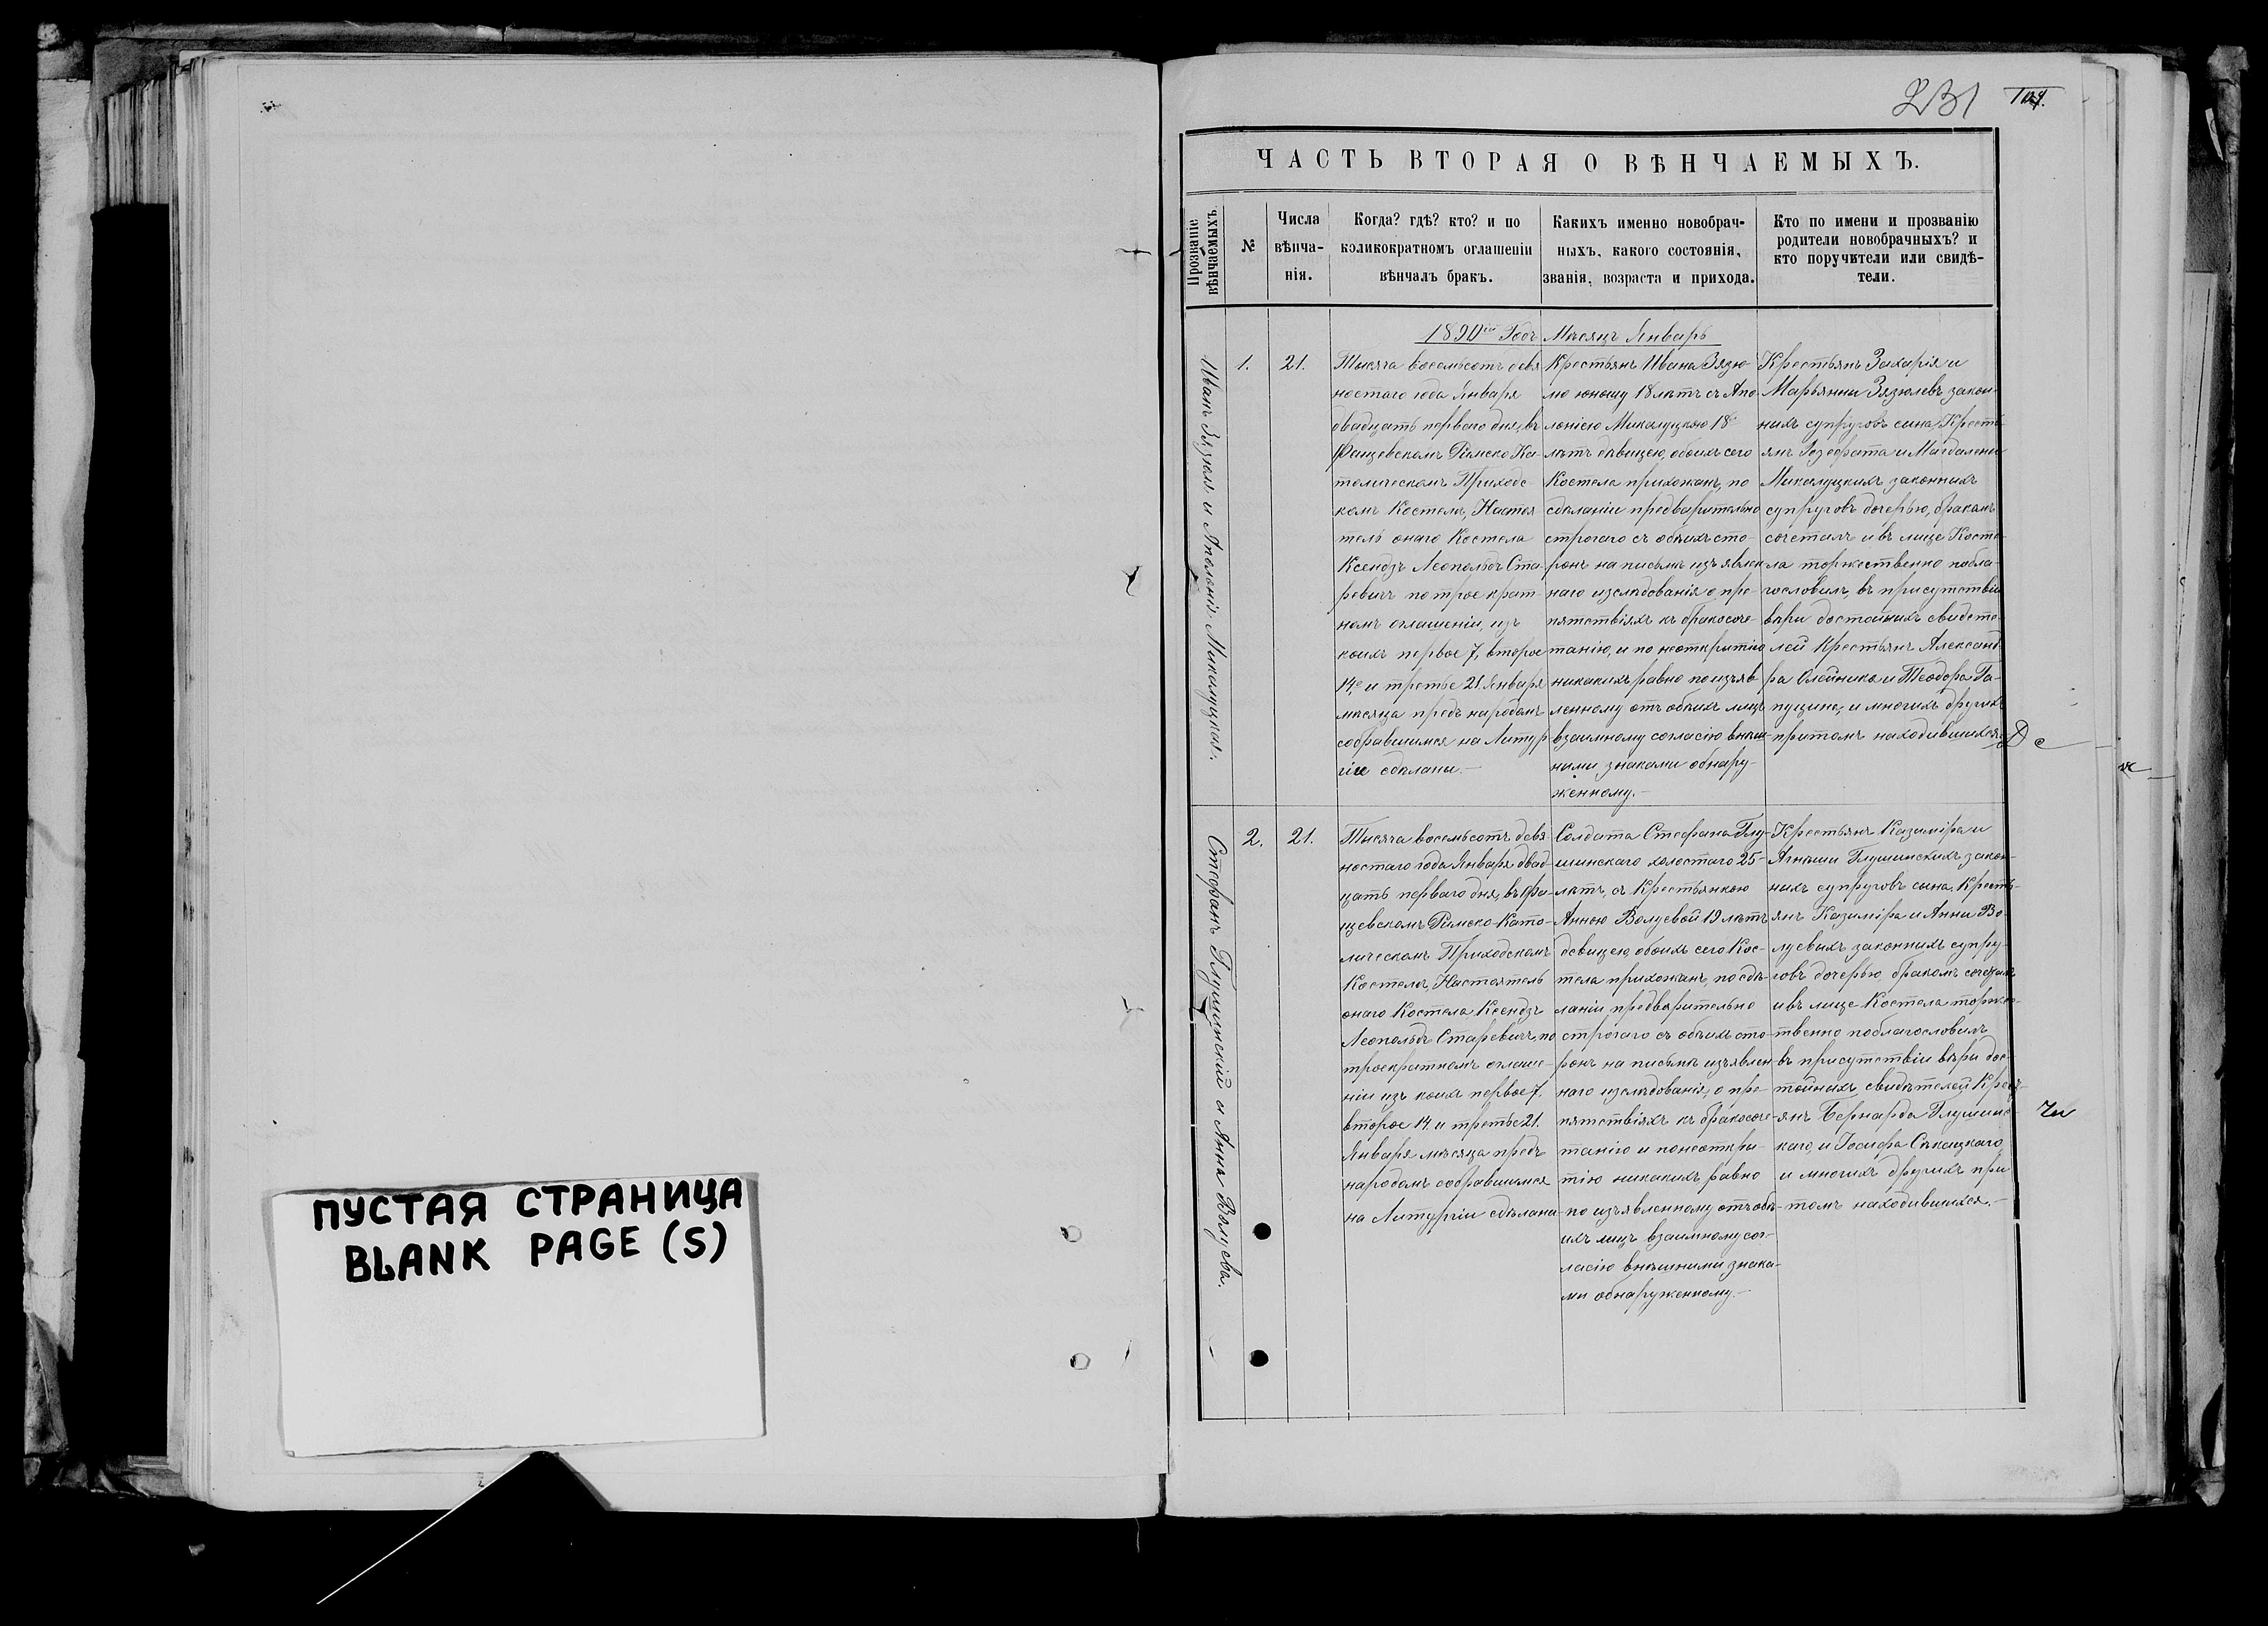 ПУСТАЯ СТРАНИЦА
BLANK PAGE (S)
231
ЧАСТЬ ВТОРАЯ О ВѢНЧАЕМЫХЪ.
Прозваніе
вѣнчаемыхъ.
№
Числа
вѣнча-
нія.
Когда? гдѣ? кто? и по
коликократномъ оглашеніи
вѣнчалъ бракъ.
Какихъ именно новобрач-
ныхъ, какого состоянія,
званія, возраста и прихода.
Кто по имени и прозванію
родители новобрачныхъ? и
кто поручители или свидѣ-
тели.
1890ый Годъ Мѣсяцъ Январь
Иванъ Зязюля и Аполонія Миколуцкая.
1.
21.
Тысяча восемьсотъ девя
ностаго года Января
двадцать перваго дня, въ
Фащевскомъ Римско Ка-
толическомъ Приходс-
комъ Костелѣ, Настоя
тель онаго Костела
Ксендзъ Леопольдъ Ста-
ревичъ по трое крат-
номъ оглашеніи, изъ
коихъ первое 7, второе
14е и третье 21 Января
мѣсяца предъ народомъ
собравшимся на Литур
гіи сдѣланы.—
Крестьянъ Ивана Зязю-
лю юношу 18 лѣтъ съ Апо
лоніею Миколуцкою 18
лѣтъ дѣвицею, обоихъ сего
Костела прихожанъ, по
сдѣланіи предварительно
строгаго съ обѣихъ сто-
ронъ на письмѣ изъявлен
наго изслѣдованія о пре-
пятствіяхъ къ бракосоче-
танію, и по неоткрытію
никакихъ равно по изъяв
ленному отъ обѣихъ лицъ
взаимному согласію внѣш-
ними знаками обнару-
женному.—
Крестьянъ Захарія и
Марьянны Зязюлевъ закон-
ныхъ супруговъ сына, Кресть-
янъ Іозефата и Магдалены
Миколуцкихъ законныхъ
супруговъ дочерью, бракомъ
сочеталъ и въ лице Косте-
ла торжественно побла-
гословилъ, въ присутствіи
вѣри достойныхъ свидѣте-
лей Крестьянъ Александ-
ра Олейника и Теодора Га-
пущине, и многихъ другихъ
притомъ находившихся.
Стефанъ Глушинскій и Анна Волуева.
2.
21.
Тысяча восемьсотъ девя-
ностаго года Января двад-
цать перваго дня, въ Фа-
щевскомъ Римско-Като-
лическомъ Приходскомъ
Костелѣ, Настоятель
онаго Костела Ксендзъ
Леопольдъ Старевичъ, по
троекратномъ оглаше-
ніи изъ коихъ первое 7,
второе 14 и третье 21.
Января мѣсяца предъ
народомъ собравшимся
на Литургіи сдѣланы
Солдата Стефана Глу-
шинскаго холостаго 25-
лѣтъ, съ Крестьянкою
Анною Волуевой 19 лѣтъ
дѣвицею, обоихъ сего Кос-
тела прихожанъ, по сдѣ-
ланіи предварительно
строгаго съ обѣихъ сто-
ронъ на письмѣ изъявлен-
наго изслѣдованія, о пре-
пятствіяхъ къ бракосоче-
танію и по неоткры-
тію никакихъ равно
по изъявленному отъ обѣ-
ихъ лицъ взаимному сог-
ласію внѣшними знака-
ми обнаруженному.—
Крестьянъ Казиміра и
Агнѣши Глушинскихъ закон-
ныхъ супруговъ сына, Кресть-
янъ Казиміра и Анны Во-
луевыхъ законныхъ супру-
говъ дочерью бракомъ сочеталъ
и въ лице Костела торжес-
твенно поблагословилъ
въ присутствіи вѣри дос-
тойныхъ свидѣтелей Кресть-
янъ Бернарда Глушинс-
каго, и Іосифа
и многихъ другихъ при
томъ находившихся.—